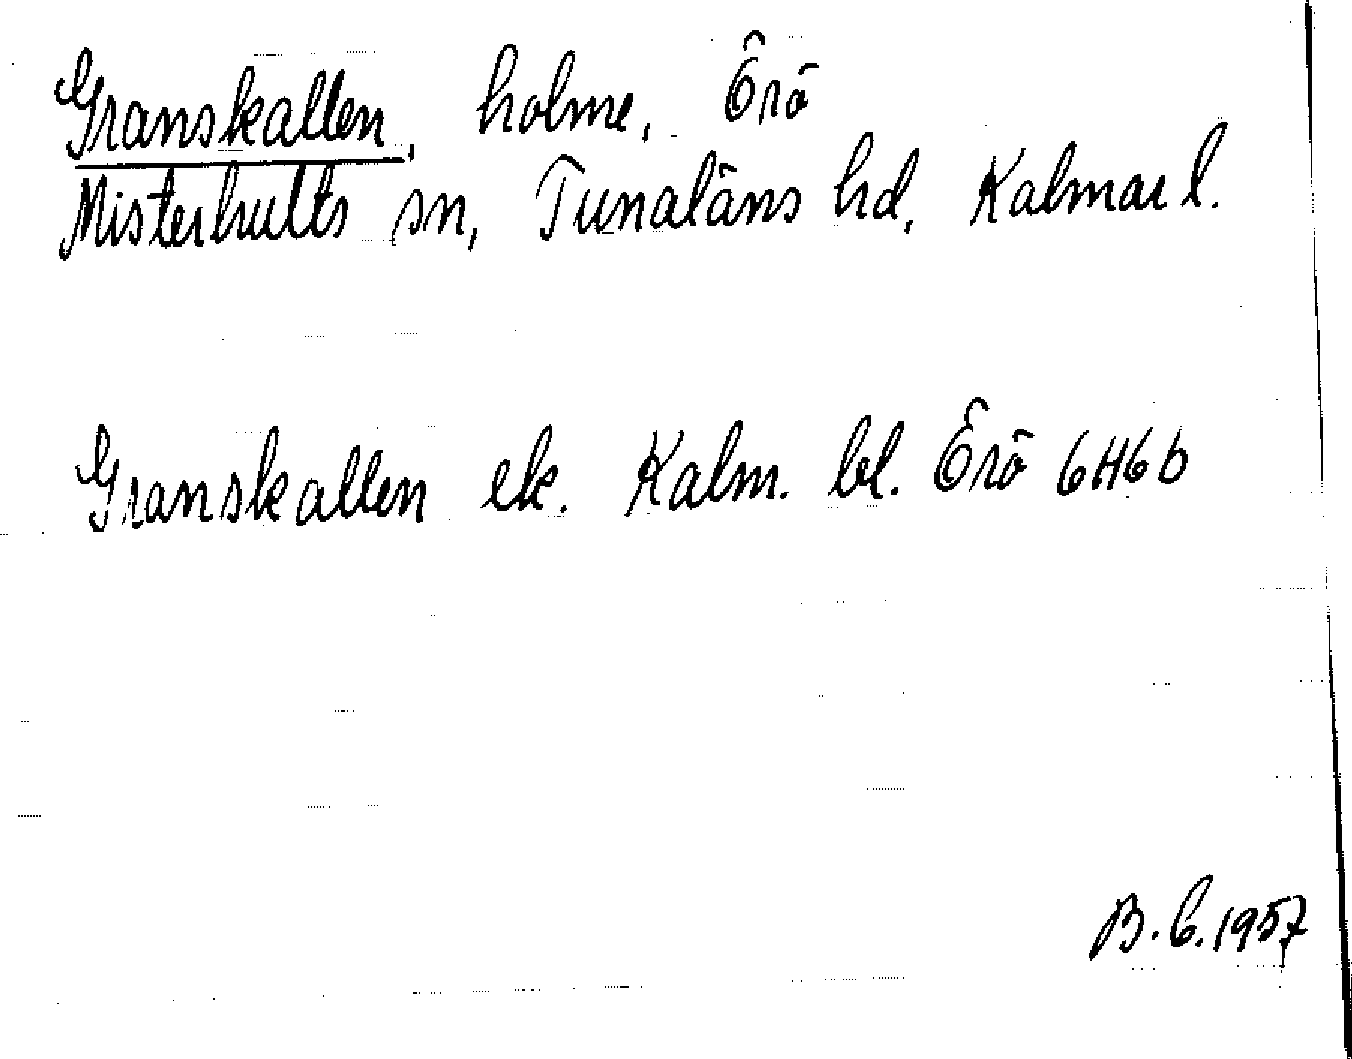 Granskallen, holme, Örö
Misterhults sn, Tunaläns hd, Kalmar l.
Granskallen ek. Kalm. bl. Örö 6H6b
B.C. 1957